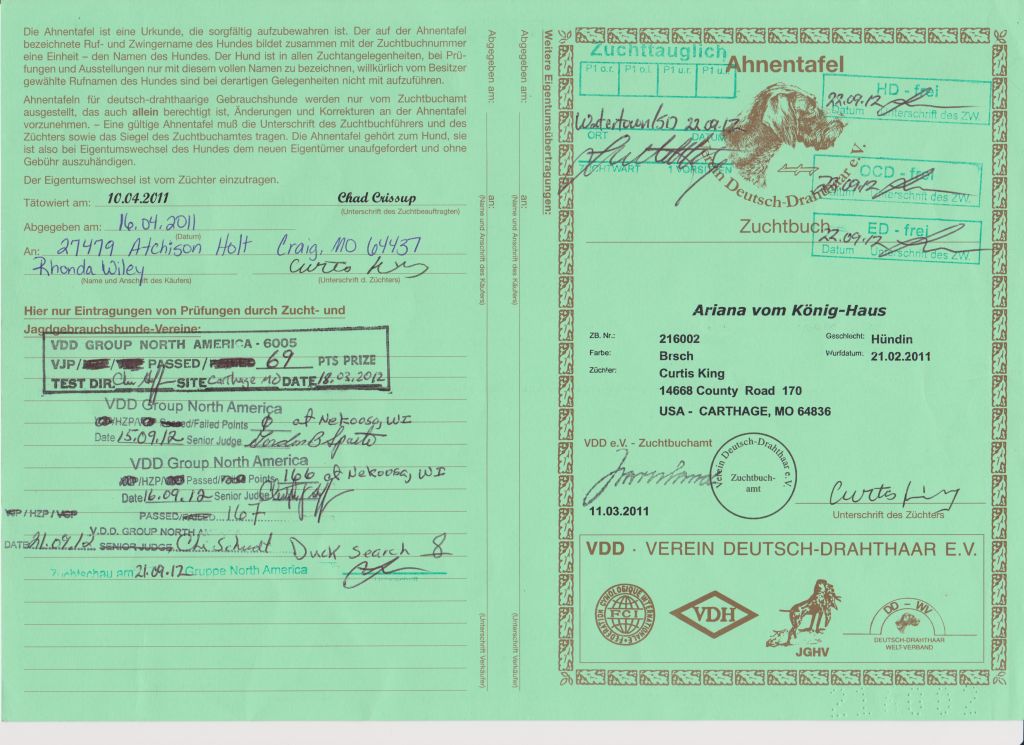 Die Ahnentafel ist eine Urkunde, die sorgfältig aufzubewahren ist. Der auf der Ahnentafel
bezeichnete Ruf- und Zwingername des Hundes bildet zusammen mit der Zuchtbuchnummer
eine Einheit – den Namen des Hundes. Der Hund ist in allen Zuchtangelegenheiten, bei Prü-
fungen und Ausstellungen nur mit diesem vollen Namen zu bezeichnen, willkürlich vom Besitzer
gewählte Rufnamen des Hundes sind bei derartigen Gelegenheiten nicht mit aufzuführen.
Ahnentafeln für deutsch-drahthaarige Gebrauchshunde werden nur vom Zuchtbuchamt
ausgestellt, das auch allein berechtigt ist, Änderungen und Korrekturen an der Ahnentafel
vorzunehmen. – Eine gültige Ahnentafel muß die Unterschrift des Zuchtbuchführers und des
Züchters sowie das Siegel des Zuchtbuchamtes tragen. Die Ahnentafel gehört zum Hund, sie
ist also bei Eigentumswechsel des Hundes dem neuen Eigentümer unaufgefordert und ohne
Gebühr auszuhändigen.
Der Eigentumswechsel ist vom Züchter einzutragen.
Tätowiert am: 10.04.2011 Chad Crissup
(Unterschrift des Zuchtbeauftragten)
Abgegeben am: 16.04.2011
(Datum)
An: 27479 Atchison Holt Craig, MO 64437
Rhonda Wiley Curtis King
(Name und Anschrift des Käufers) (Unterschrift d. Züchters)
Hier nur Eintragungen von Prüfungen durch Zucht- und
Jagdgebrauchshunde-Vereine:
VDD GROUP NORTH AMERICA - 6005
VJP/ PASSED/ 69 PTS PRIZE
TEST DIR. SITE Carthage MO DATE 18.03.2012
VDD Group North America
/HZP/ Passed/Failed Points 0 at Nekoosa, WI
Date 15.09.12 Senior Judge
VDD Group North America
/HZP/ Passed/ Points 166 at Nekoosa, WI
Date 16.09.12 Senior Judge
VJP / HZP / VGP PASSED/FAILED 167
V.D.D. GROUP NORTH
DATE 21.09.12 SENIOR JUDGE Duck search 8
Zuchtschau am 21.09.12 Gruppe North America
Abgegeben am:
an:
(Name und Anschrift des Käufers)
(Unterschrift Verkäufer)
Abgegeben am:
an:
(Name und Anschrift des Käufers)
(Unterschrift Verkäufer)
Weitere Eigentumsübertragungen:
Zuchttauglich
P1 o.r. P1 o.l. P1 u.r. P1 u.l.
Watertown/SD 22.09.12
ORT DATUM
ZUCHTWART
Ahnentafel
HD - frei
22.09.12
Datum Unterschrift des ZW.
OCD - frei
22.09.12
Unterschrift des ZW.
ED - frei
22.09.12
Datum Unterschrift des ZW.
Verein Deutsch-Drahthaar e.V.
Zuchtbuch
Ariana vom König-Haus
ZB. Nr.: 216002 Geschlecht: Hündin
Farbe: Brsch Wurfdatum: 21.02.2011
Züchter: Curtis King
14668 County Road 170
USA - CARTHAGE, MO 64836
VDD e.V. - Zuchtbuchamt
Verein Deutsch-Drahthaar e.V.
Zuchtbuch-
amt
11.03.2011
Curtis King
Unterschrift des Züchters
VDD · VEREIN DEUTSCH-DRAHTHAAR E.V.
FEDERATION CYNOLOGIQUE INTERNATIONALE
FCI
VDH
JGHV
DD - WV
DEUTSCH-DRAHTHAAR
WELT-VERBAND